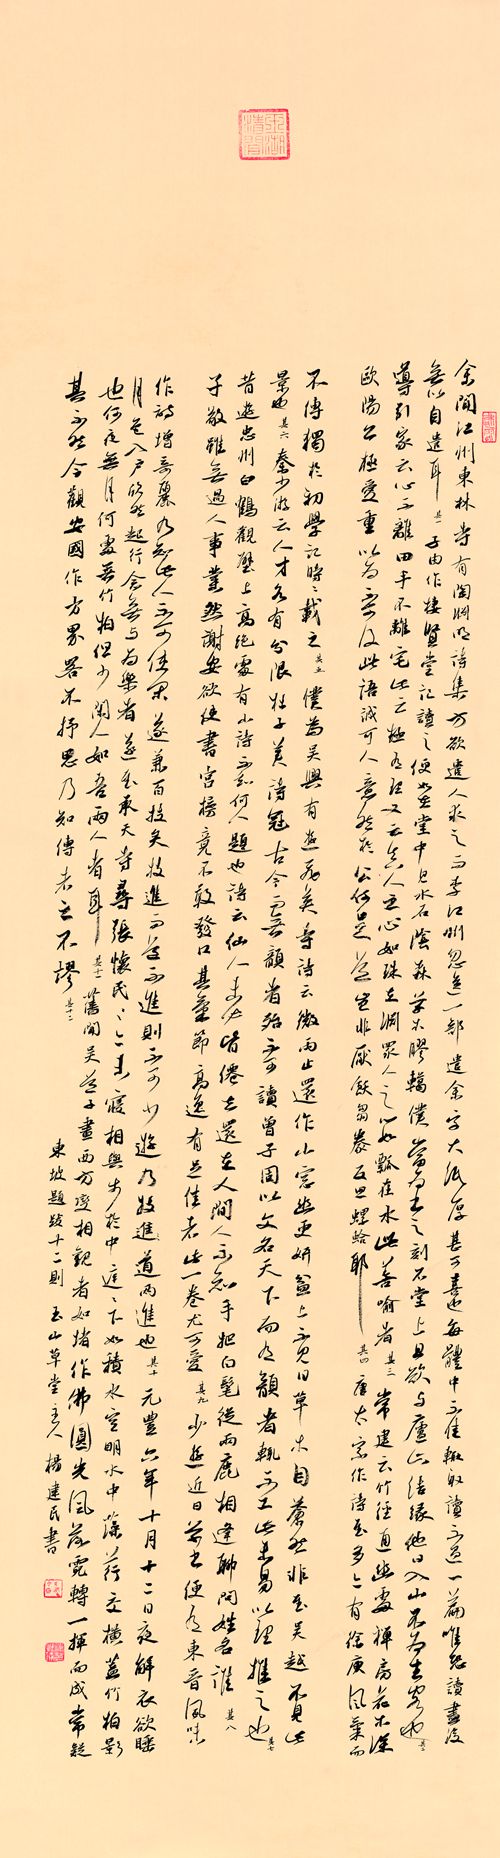 余聞江州東林寺有陶淵明詩集方欲遣人求之而李江州忽送一部遺余字大紙厚甚可喜也每體中不佳輒取讀不過一篇唯恐讀盡後
無以自遣耳其一子由作棲賢堂記讀之便如在堂中見水石陰森草木膠轕僕當為書之刻石堂上且欲與廬山結緣他日入山不為生客也其二
導引家云心不離田手不離宅此云極有理又云真人之心如珠在淵眾人之心如瓢在水此善喻者其三常建云竹徑通幽處禪房花木深
歐陽公極愛重以為不及此語誠可人意然於公何足道豈非厭飫芻豢反思螺蛤耶其四唐太宗作詩至多亦有徐庾風氣而
不傳獨於初學記時時載之其五僕為吳興有遊飛英寺詩云微雨止還作小窗幽更妍盆山不見日草木自蒼然非至吳越不見此
景也其六秦少游云人才各有分限杜子美詩冠古今而無韻者殆不可讀曾子固以文名天下而有韻者輒不工此未易以理推之也其七
昔遊忠州白鶴觀壁上高絕處有小詩不知何人題也詩云仙人未必皆仙去還在人間人不知手把白髦從兩鹿相逢聊問姓名誰其八
子敬雖無過人事業然謝安欲使書宮榜竟不敢發口其氣節高逸有足佳者此一卷尤可愛其九少遊近日草書便有東晉風味
作詩增奇麗乃知此人不可使閑遂兼百技矣技進而道不進則不可少遊乃技進道兩進也其十元豐六年十月十二日夜解衣欲睡
月色入戶欣然起行念無與為樂者遂至承天寺尋張懷民懷民亦未寢相與步於中庭庭下如積水空明水中藻荇交橫蓋竹柏影
也何夜無月何處無竹柏但少閑人如吾兩人者耳其十一舊聞吳道子畫西方變相觀者如堵作佛圓光風落電轉一揮而成嘗疑
其不然今觀安國作方界略不抒思乃知傳者之不謬其十二
東坡題跋十二則 玉山草堂主人楊建民書